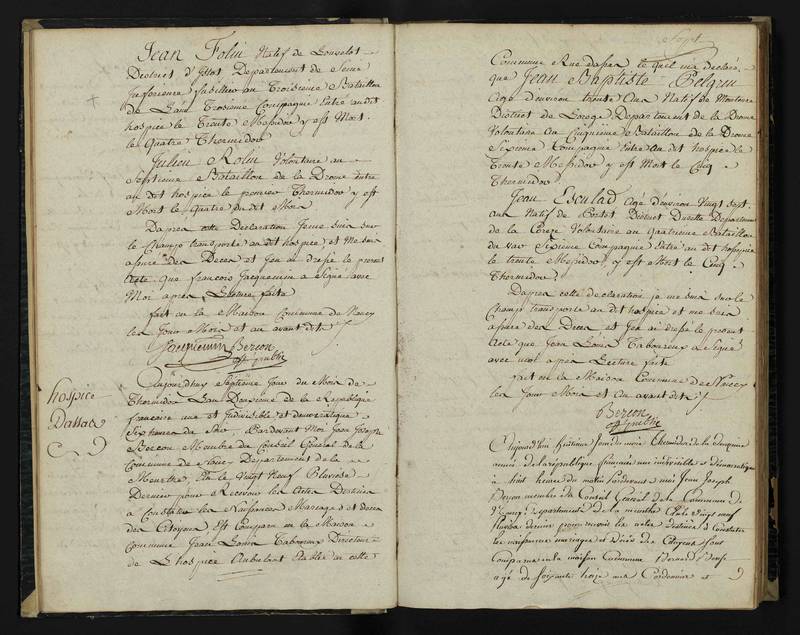 Jean Folin Natif de Louvelot
District d' Departement de Seine
Inferieure fusillier au Troisieme Bataillon
de Troisieme Compagnie Entré audit
hospice le Trente Messidor y est Mort
le Quatre Thermidor
Julien Rolin Volontaire au
Septieme Bataillon de la Drome Entre
au dit hospice le premier Thermidor y est
Mort le Quatre du dit Mois
Dapres cette Declaration Jeme suis sur
le Champ transporte au dit hospice et Me suis
assuré des Deces et Jen ai dressé le present
acte Que francois Jacquemin a Signé avec
Moi apres Lecture faite
fait en la Maison Commune de Nancy
les Jour Mois et an avant dits
Jacquemin Berson
off public
hospice
Dassas
Aujourdhuy Septieme Jour du Mois de
Thermidor Lan Deuxieme de la Republique
francaise une et Indivisible et democratique
Six heures du Soir Pardevant Moi Jean Joseph
Berson Membre du Conseil General de la
Commune de Nancy Departement de la
Meurthe, Elu le Vingt Neuf Pluviose
Dernier pour Recevoir les Actes Destinés
a Constater les Naissances Mariages et deces
des Citoyens Est Comparu en la Maison
Commune Jean Louis Taboureux Directeur
de Lhospice Ambulant Etablie en cette
Sept
Commune Rue dassas le quel ma declaré
que Jean Baptiste Pelgrin
Agé d'environ trente Ans Natif de
District de Departement de la Drome
Volontaire au Cinquieme Bataillon de la Drome
Sixieme Compagnie Entré au dit hospice le
Trente Messidor y est Mort le Cinq
Thermidor
Jean Esculad Agé d'environ Vingt Sept
ans Natif de District Departement
de la Coreze Volontaire au Quatrieme Bataillon
du Sixieme Compagnie Entré au dit hospice
le trente Messidor y est Mort le Cinq
Thermidor
Dapres cette declaration je me suis sur le
Champ transporte au dit hospice et me suis
assuré des Deces et Jen ai dressé le present
Acte que Jean Louis Taboureux a Signé
avec moi apres Lecture faite
fait en la Maison Commune de Nancy
les Jour Mois et an avant dits
Berson
off public
Aujourd'hui huitieme jour du mois Thermidor de la deuxieme
année de la république francaise une indivisible et Démocratique
à huit heures du matin Pardevant moi Jean Joseph
Berson membre du Conseil Général de la Commune de
Nancy Departement de la meurthe Elu le Vingt neuf
pluviose dernier pour recevoir les actes destinés à Constater
les naissances mariages et Décès des Citoyens sont
Comparus en la maison Commune Bernard
agé de soixante treize ans Cordonnier et